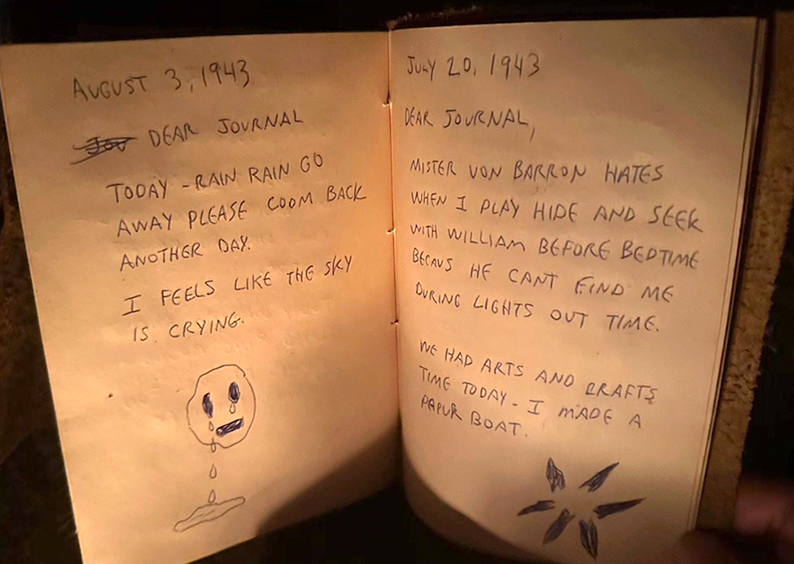 AUGUST 3, 1943
DEAR JOURNAL
TODAY - RAIN RAIN GO
AWAY PLEASE COOM BACK
ANOTHER DAY.
I FEELS LIKE THE SKY
IS CRYING.
JULY 20, 1943
DEAR JOURNAL,
MISTER VON BARRON HATES
WHEN I PLAY HIDE AND SEEK
WITH WILLIAM BEFORE BEDTIME
BECAUS HE CANT FIND ME
DURING LIGHTS OUT TIME.
WE HAD ARTS AND CRAFTS
TIME TODAY - I MADE A
PAPUR BOAT.